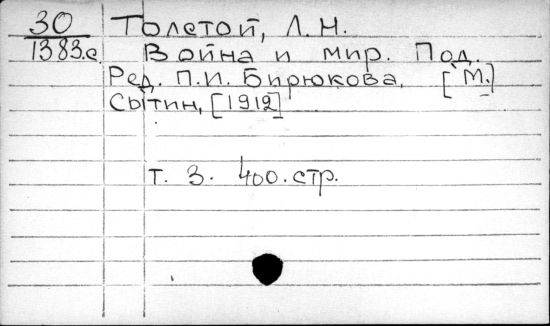 30 Толстой, Л. Н.
1383.с. Война и мир. Под.
Ред. П.И. Бирюкова. [М.]
Сытин, [1912]
т. 3. 400.стр.